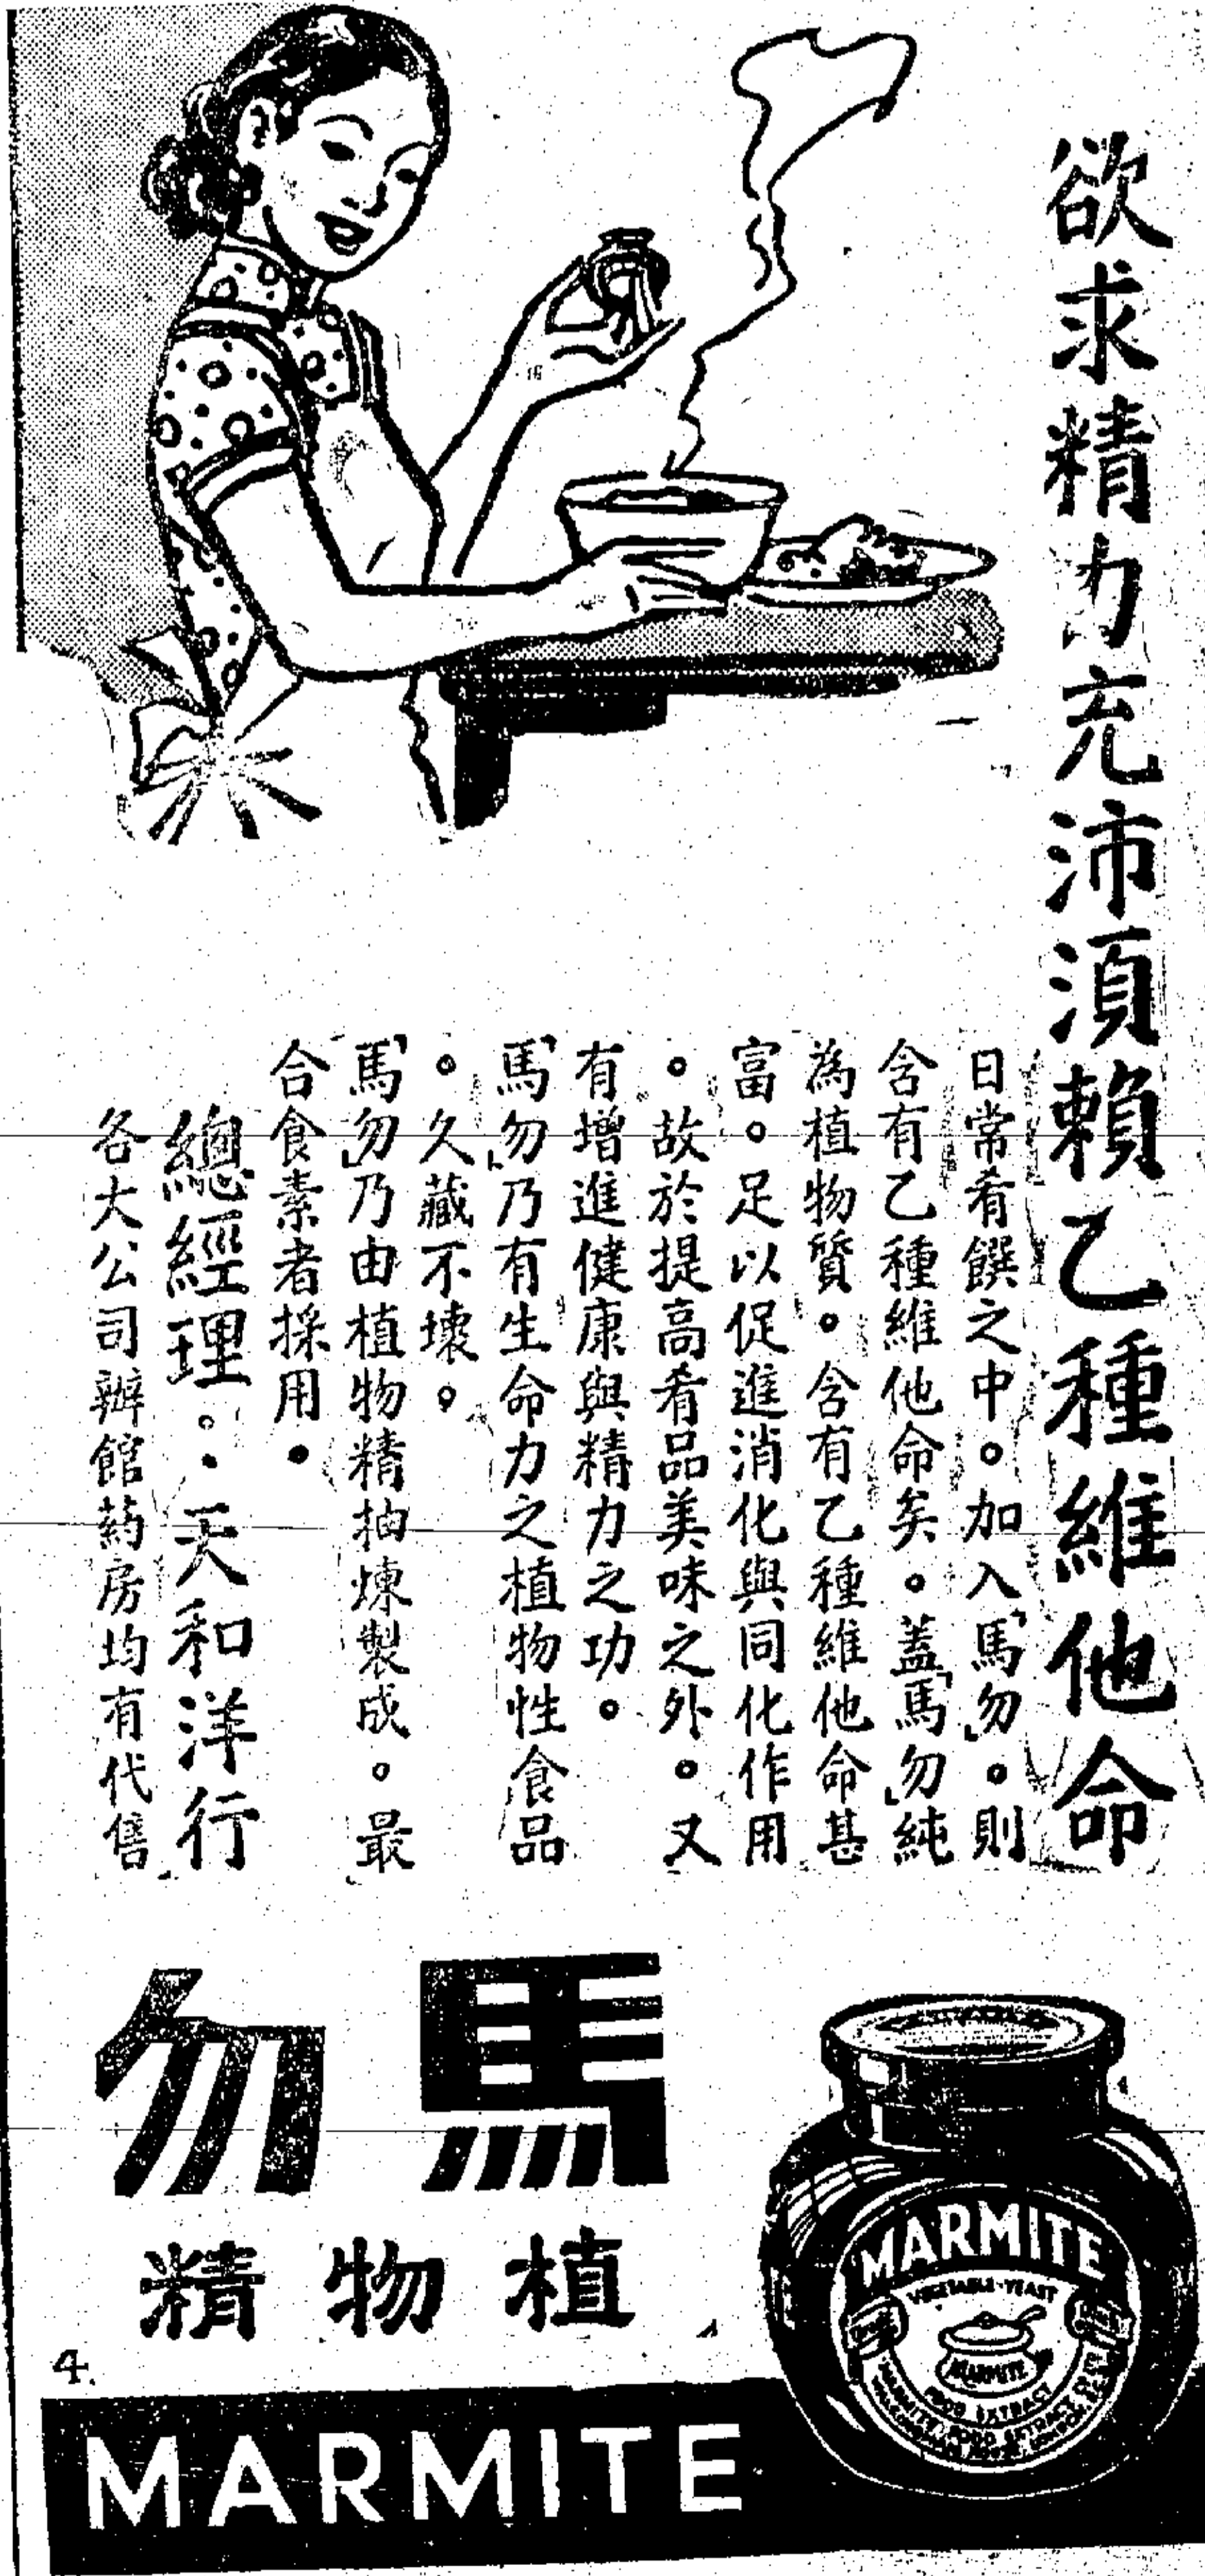 欲求精力充沛須賴乙種維他命
日常肴饌之中。加入「馬勿」。則
含有乙種維他命矣。蓋「馬勿」純
為植物質。含有乙種維他命甚
富。足以促進消化與同化作用
。故於提高肴品美味之外。又
有增進健康與精力之功。
「馬勿」乃有生命力之植物性食品
。久藏不壞。
「馬勿」乃由植物精抽煉製成。最
合食素者採用．
總經理．．天和洋行
各大公司辦館葯房均有代售
馬勿
植物精
MARMITE
VEGETABLE-YEAST
MARMITE
FOOD EXTRACT
4.
MARMITE